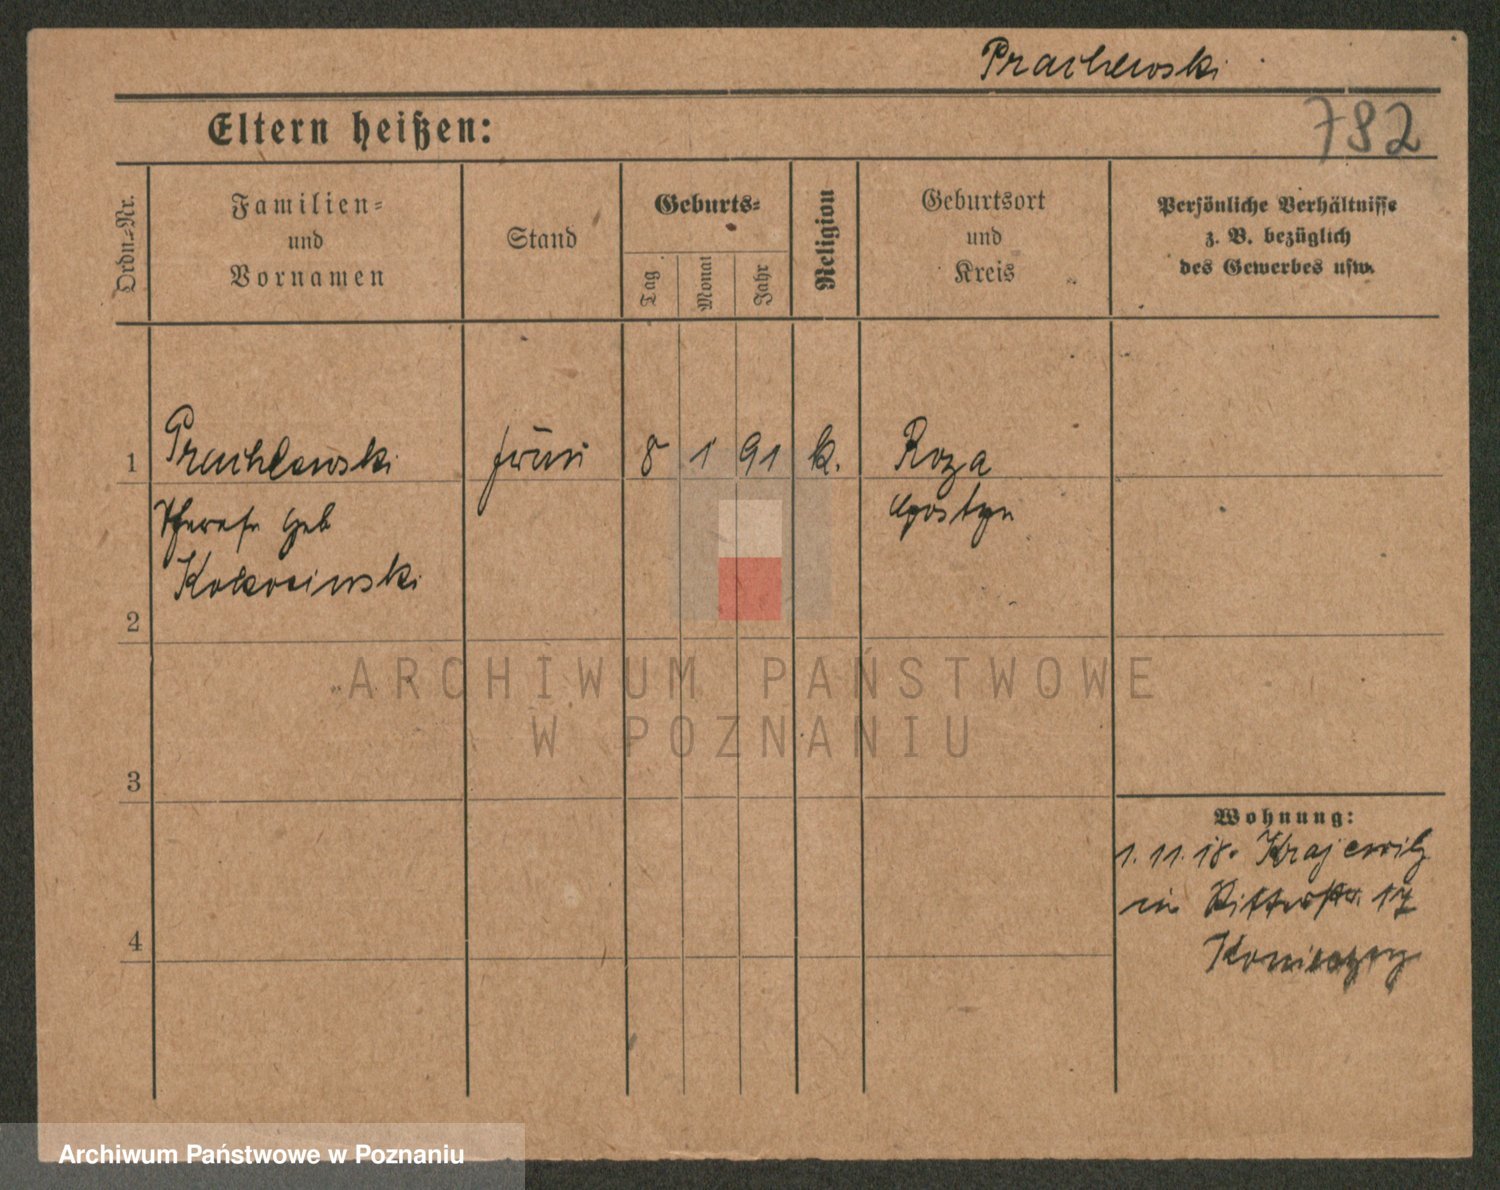 Prachlewski
Eltern heißen:
782
Ordn.-Nr.
Familien-
und
Vornamen
Stand
Geburts-
Tag
Monat
Jahr
Religion
Geburtsort
und
Kreis
Persönliche Verhältnisse
z. B. bezüglich
des Gewerbes usw.
1 Prachlewski 8 1 91 k. Roza
Therese geb Gostyn
2
3
4
Wohnung:
1. 11. 18. Krajewitz
in Ritterstr. 17
ARCHIWUM PAŃSTWOWE
W POZNANIU
Archiwum Państwowe w Poznaniu